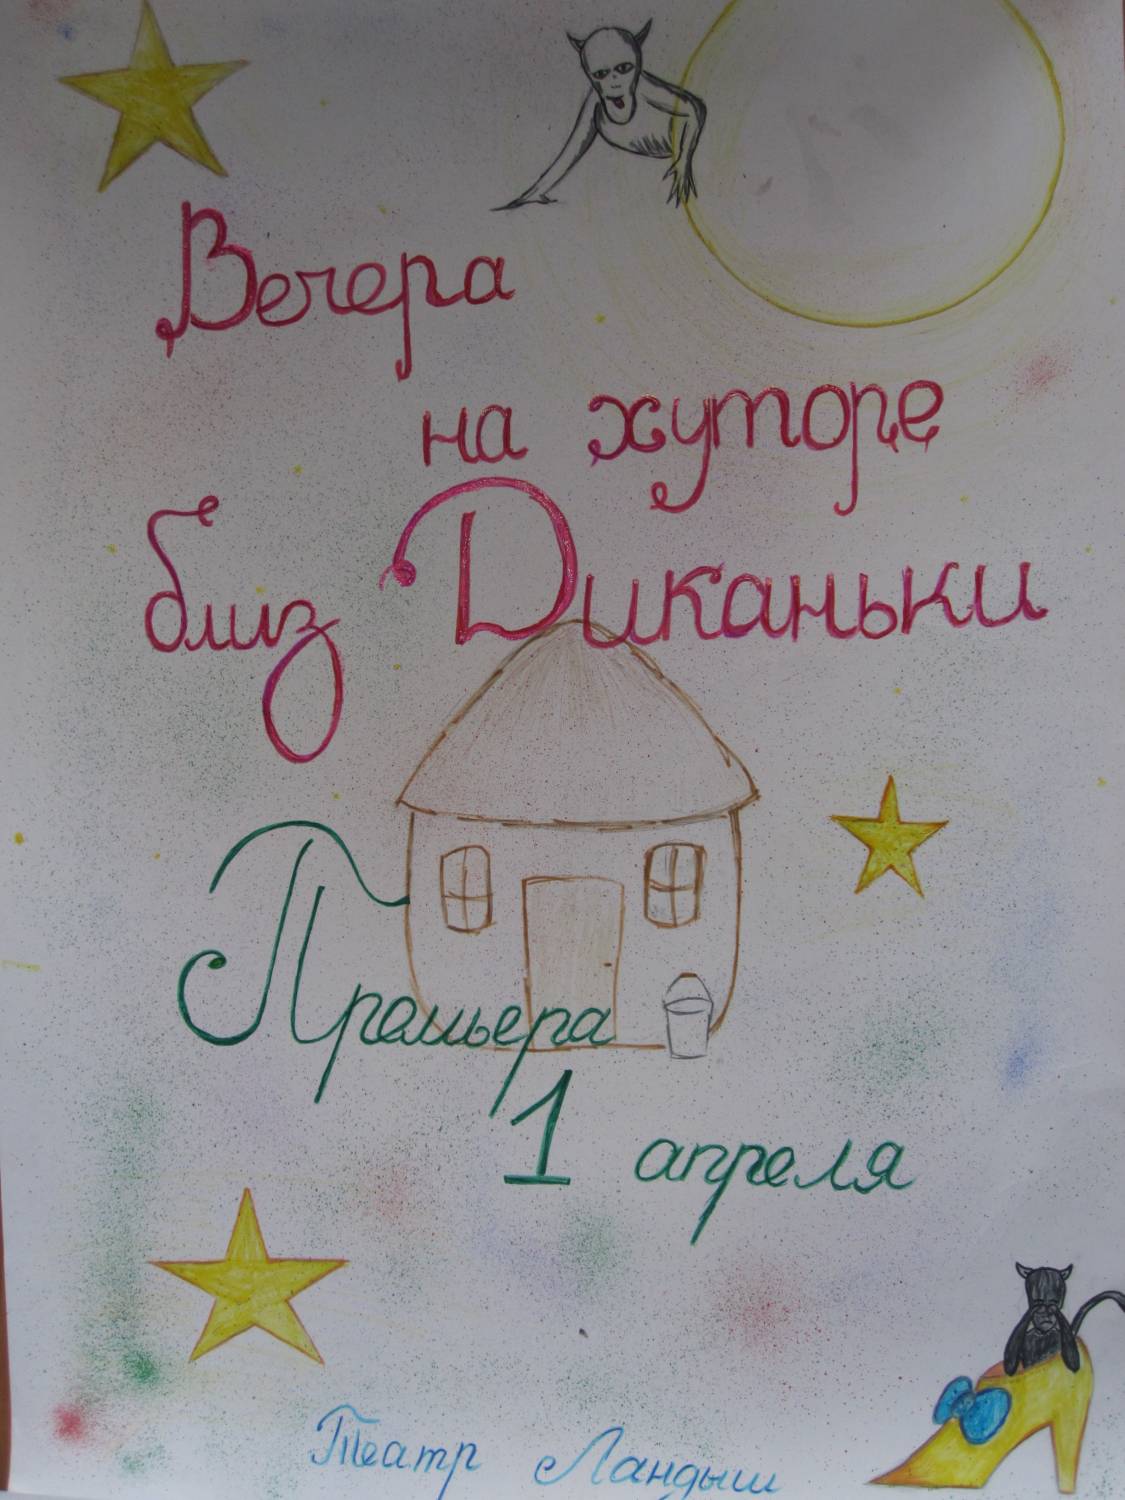 Вечера
на хуторе
близ Диканьки
Премьера
1 апреля
Театр Ландыш